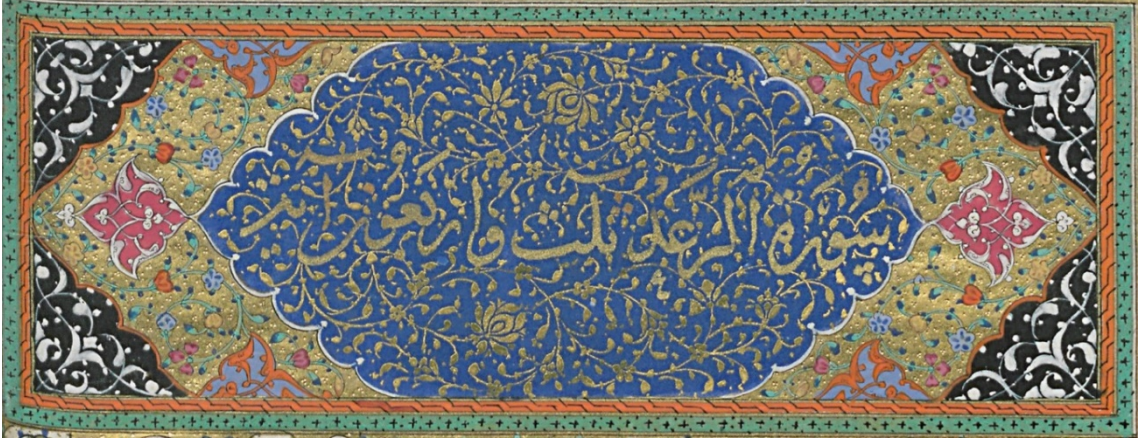 سورة الرعد ثلث واربعون اية